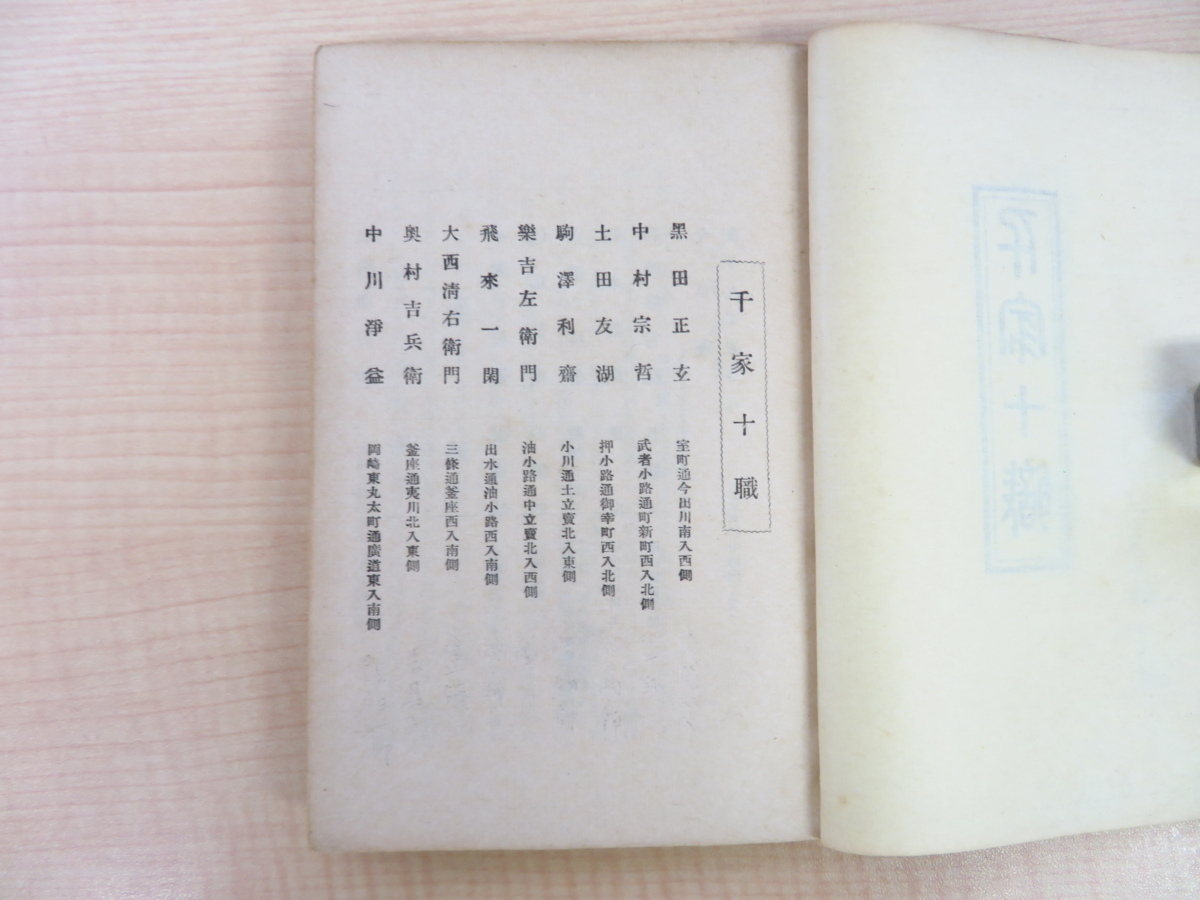 千家十職
黑田正玄 室町通今出川南入西側
中村宗哲 武者小路通町新町西入北側
土田友湖 押小路通御幸町西入北側
駒澤利齋 小川通上立賣北入東側
樂吉左衛門 油小路通中立賣北入西側
飛來一閑 出水通油小路西入南側
大西淸右衛門 三條通釜座西入南側
奥村吉兵衛 釜座通夷川北入東側
中川淨益 岡崎東丸太町通廣道東入南側
千家十職